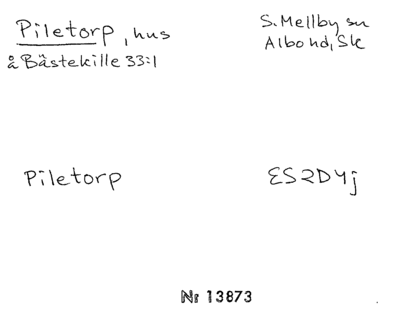 Piletorp, hus
å Bästekille 33:1
S. Mellby sn
Albo hd, Sk
Piletorp
ES2D4j
Nr 13873